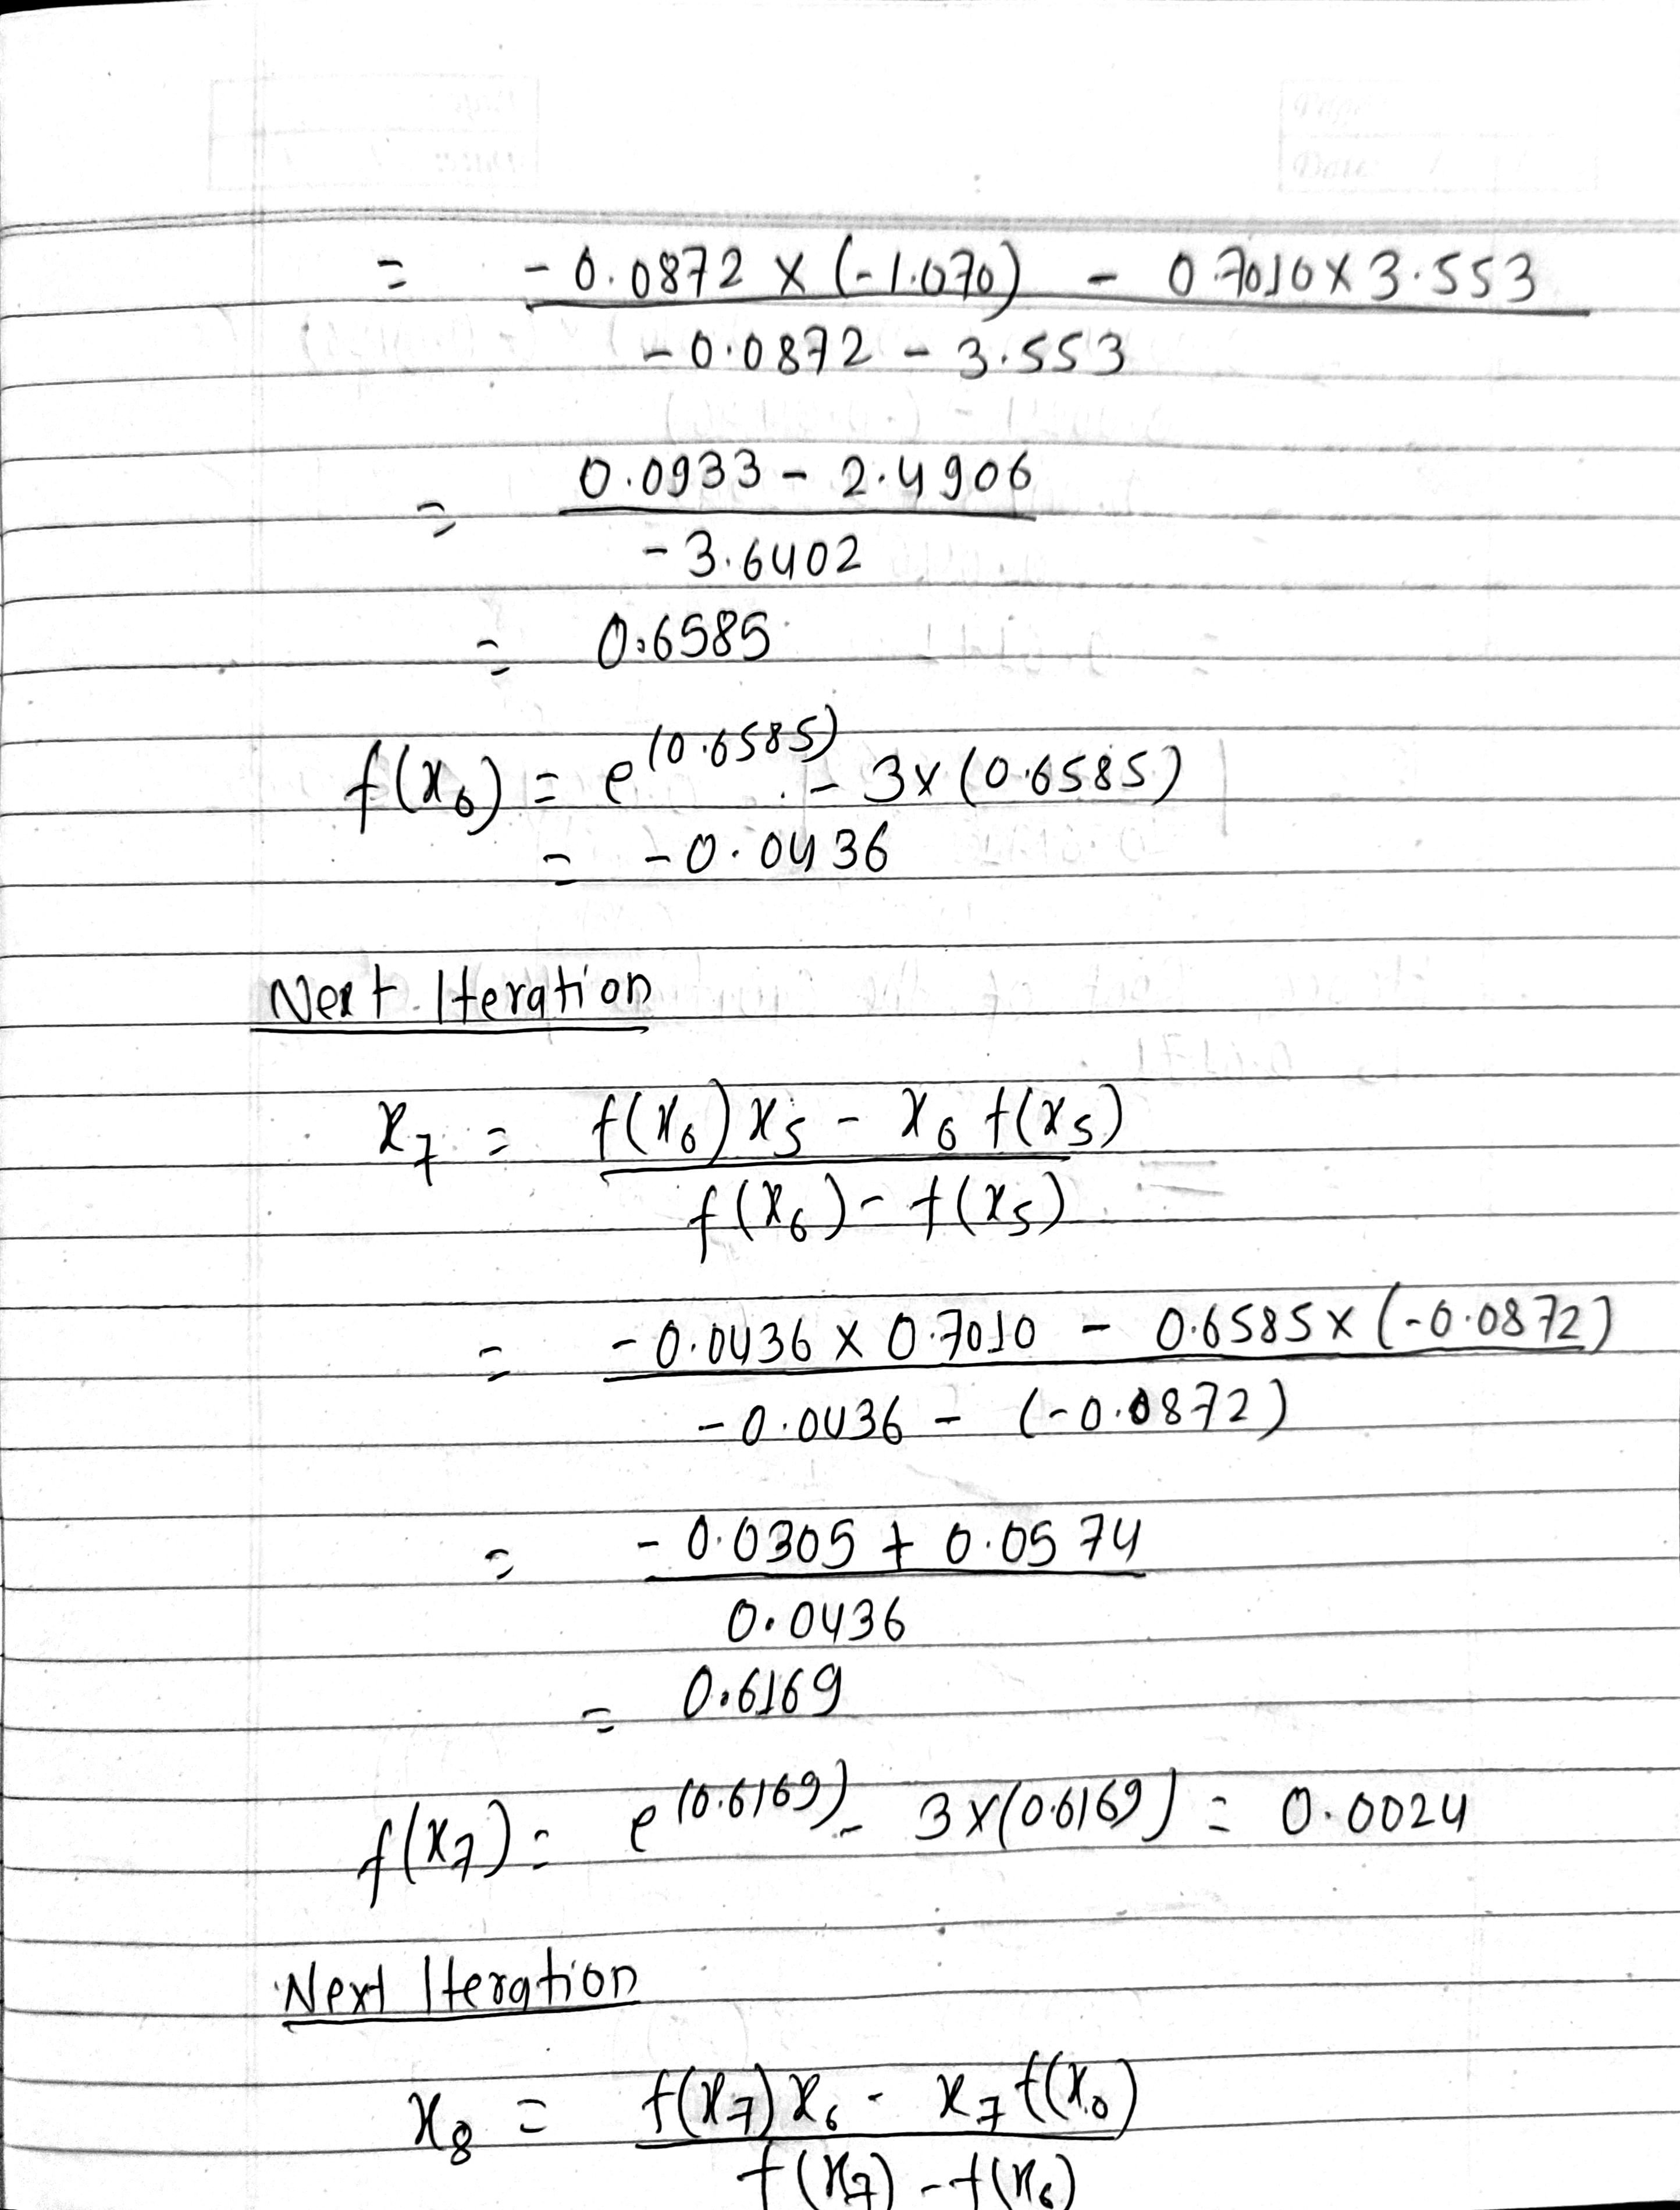 = -0.0872 × (-1.070) - 0.7010 × 3.553
-0.0872 - 3.553
= 0.0933 - 2.4906
-3.6402
= 0.6585
f(x₆) = e^(0.6585) - 3×(0.6585)
= -0.0436
Next Iteration
x₇ = f(x₆)x₅ - x₆ f(x₅)
f(x₆) - f(x₅)
= -0.0436 × 0.7010 - 0.6585 × (-0.0872)
-0.0436 - (-0.0872)
= -0.0305 + 0.0574
0.0436
= 0.6169
f(x₇) = e^(0.6169) - 3×(0.6169) = 0.0024
Next Iteration
x₈ = f(x₇)x₆ - x₇ f(x₆)
f(x₇) - f(x₆)